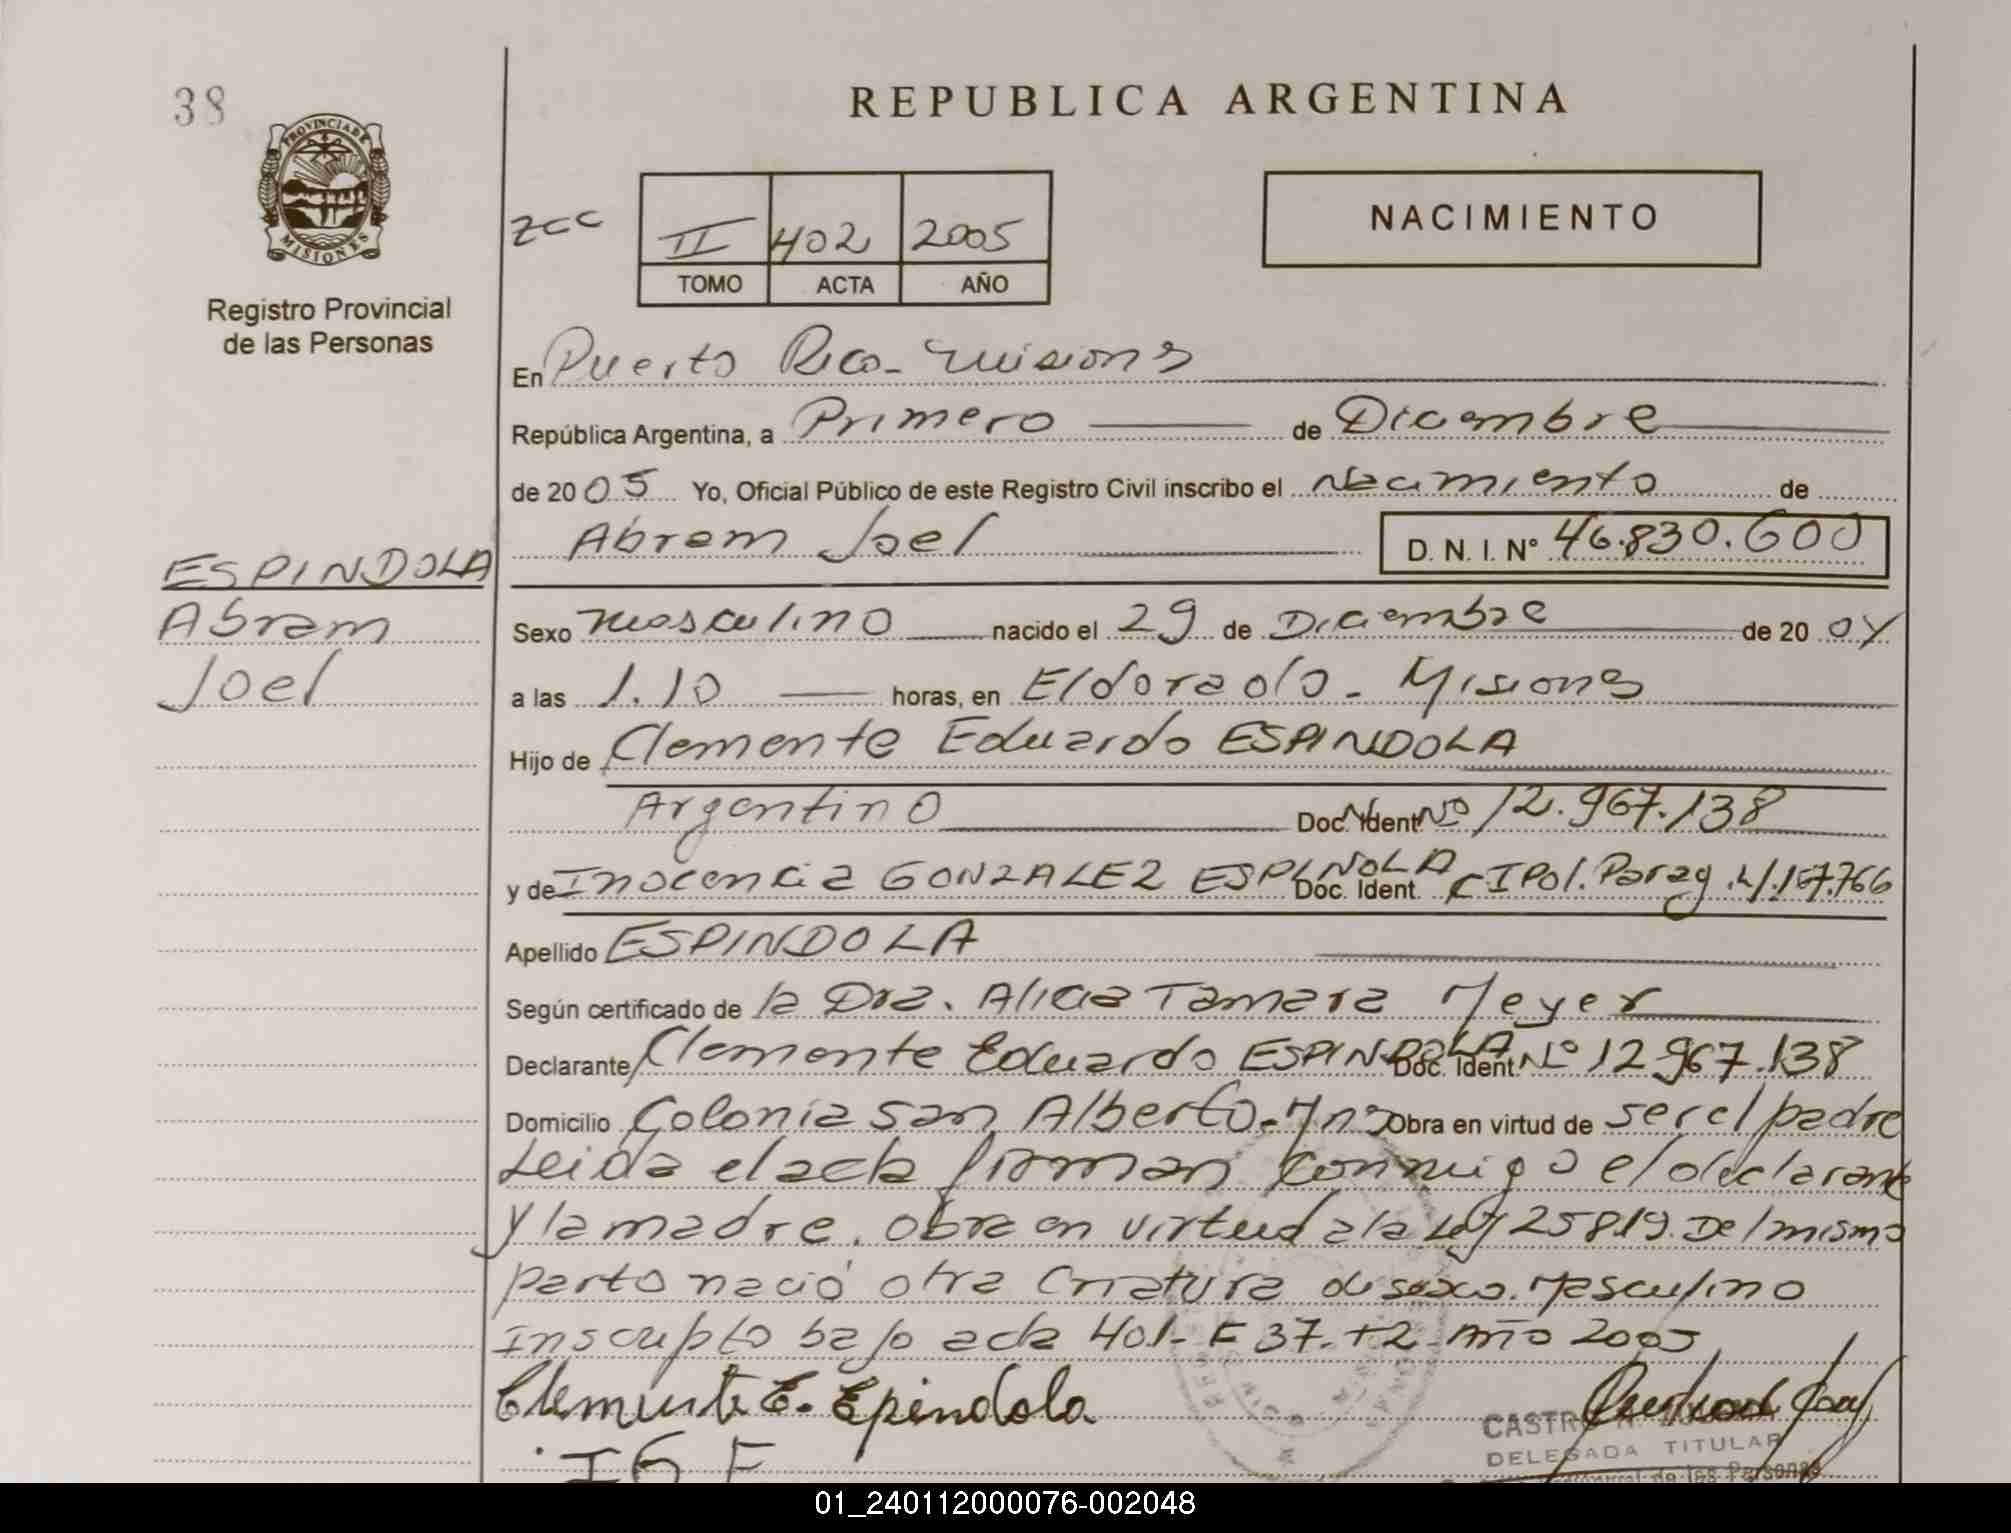 38
REPUBLICA ARGENTINA
PROVINCIA DE
MISIONES
Registro Provincial
de las Personas
zcc
II 402 2005
TOMO ACTA AÑO
NACIMIENTO
En Puerto Rico - Misiones
República Argentina, a Primero de Diciembre
de 2005 Yo, Oficial Público de este Registro Civil inscribo el Nacimiento de
Abram Joel D. N. I. Nº 46.830.600
ESPINDOLA
Abram
Joel
Sexo Masculino nacido el 29 de Diciembre de 2004
a las 1.10 horas, en Eldorado - Misiones
Hijo de Clemente Eduardo ESPINDOLA
Argentino Doc. Ident. Nº 12.967.138
y de Inocencia GONZALEZ ESPINOLA Doc. Ident. CIPol. Parag. 4.167.766
Apellido ESPINDOLA
Según certificado de la Dra. Alicia Tamara Meyer
Declarante Clemente Eduardo ESPINDOLA Doc. Ident. Nº 12967.138
Domicilio Colonia San Alberto - Mnes Obra en virtud de ser el padre
Leida el acta firman conmigo el declarante
y la madre. Obra en virtud a la Ley 25819. Del mismo
parto nació otra criatura de sexo Masculino
Inscripto bajo acta 401 - F 37. T2 - Año 2005
Clemente E. Epindola
CASTRO
DELEGADA TITULAR
de las Personas
I G E
01_240112000076-002048